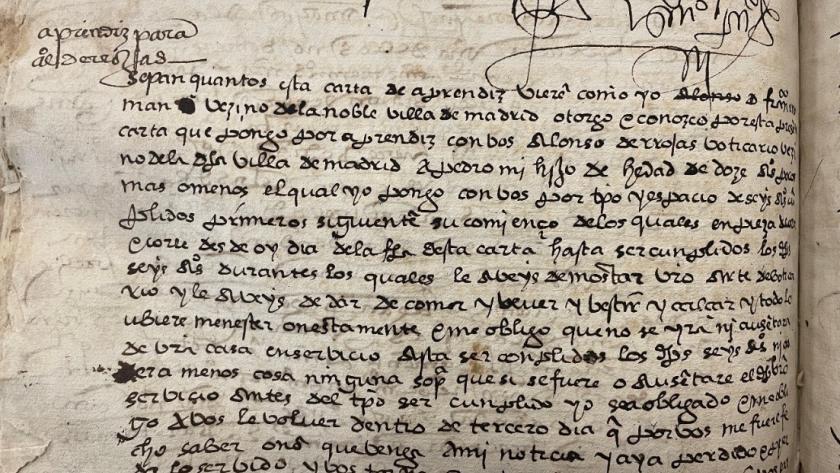 aprendiz para
Sepan quantos esta carta de aprendiz vierē como yo alonso d frco
man vezino de la noble villa de madrid otorgo e conozco por esta
carta que pongo por aprendiz con bos alonso de rrojas boticario vezi
no de la dha villa de madrid a pedro mi hijo de hedad de doze as poco
mas o menos el qual yo pongo con bos por tpo y espacio de seys as cū
plidos primeros siguientes su comienço de los quales enpieça
e corre desde oy dia de la fha desta carta hasta ser cunplidos los dhos
seys as durantes los quales le aveys de mostrar vro arte de botica
rio y le aveys de dar de comer y bever y bestir y calcar y todo lo
ubiere menester onestamente e me obligo que no se yra ni ausētara
de vra casa en servicio asta ser conplidos los dhos seys as ni os
sera menos cosa ninguna so pa que si se fuere o ausētare el dho vro
servicio antes del tpo ser cunplido yo sea obligado e me obli
go a bos le volver dentro de tercero dia q por bos me fuere fe
cho saber o ns que benga a mi noticia y aya perdido
lo servido y bos